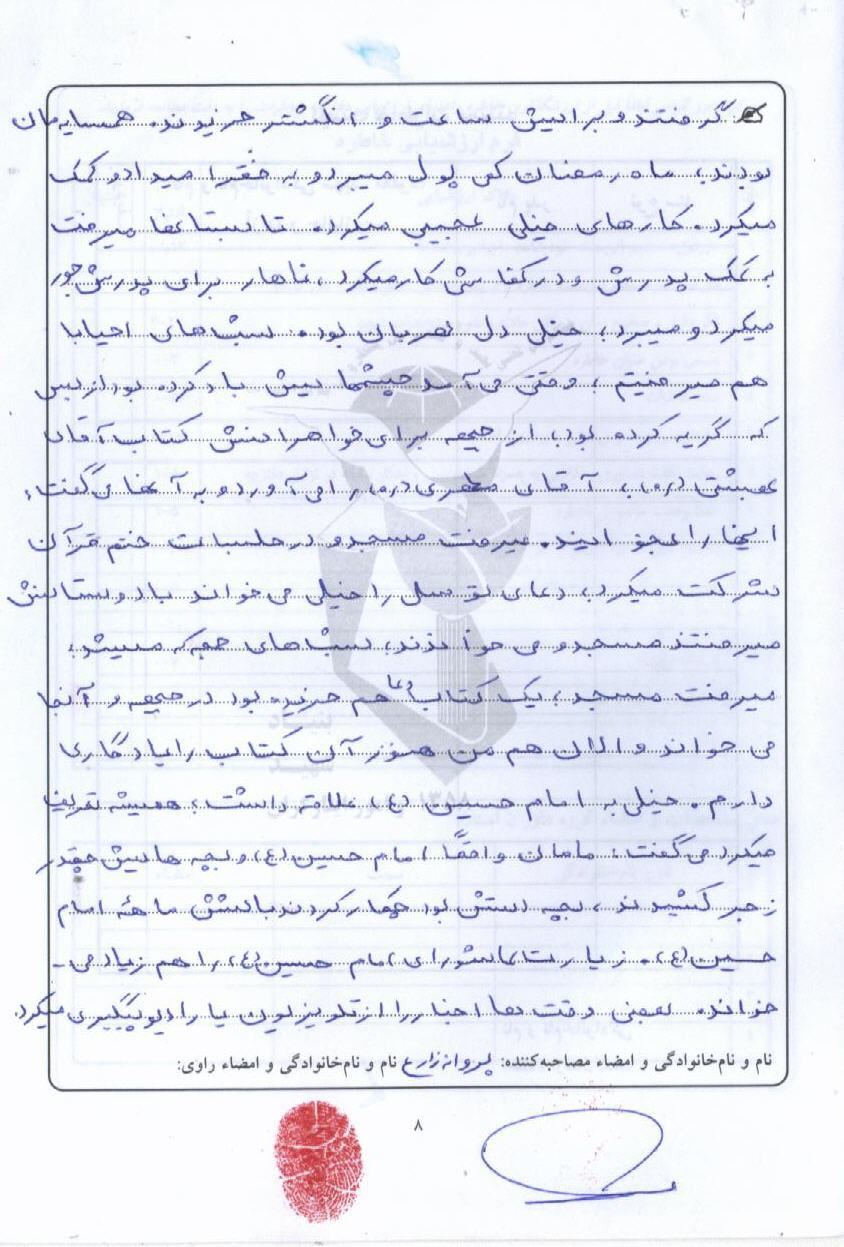 گرفتند و برایش ساعت و انگشتر خریدند. همسایه‌مان
بودند، ماه رمضان کمی پول میبرد و به فقرا میداد و کمک
میکرد. کارهای خیلی عجیبی میکرد. تابستانها میرفت
به کمک پدرش و در کفاشی کار میکرد، ناهار برای پدرش جور
میکرد و میبرد، خیلی دل مهربان بود. شب‌های احیا با
هم میرفتیم، وقتی می‌آمد چشمهایش باد کرده بود از بس
که گریه کرده بود، از جبهه برای خواهرانش کتاب آقای
بهشتی (ره)، آقای مطهری (ره) را می‌آورد و به آنها می‌گفت:
اینها را بخوانید. میرفت مسجد و در جلسات ختم قرآن
شرکت میکرد، دعای توسل را خیلی می‌خواند با دوستانش
میرفتند مسجد و می‌خواندند، شب‌های جمعه که میشد،
میرفت مسجد، یک کتاب دعا هم خریده بود در جبهه و آنجا
می‌خواند و الان هم من هنوز آن کتاب را یادگاری
دارم. خیلی به امام حسین (ع) علاقه داشت، همیشه تعریف
میکرد می‌گفت: مامان واقعاً امام حسین (ع) و بچه‌هایش چقدر
زجر کشیدند، بچه دستش بود چکار کردند باهاش
حسین (ع). زیارت عاشورای امام حسین (ع) را هم زیاد می‌-
خواند. بعضی وقت‌ها اخبار را از تلویزیون یا رادیو پیگیری میکرد.
نام و نام‌خانوادگی و امضاء مصاحبه‌کننده: پروانه زارع نام و نام‌خانوادگی و امضاء راوی:
۸